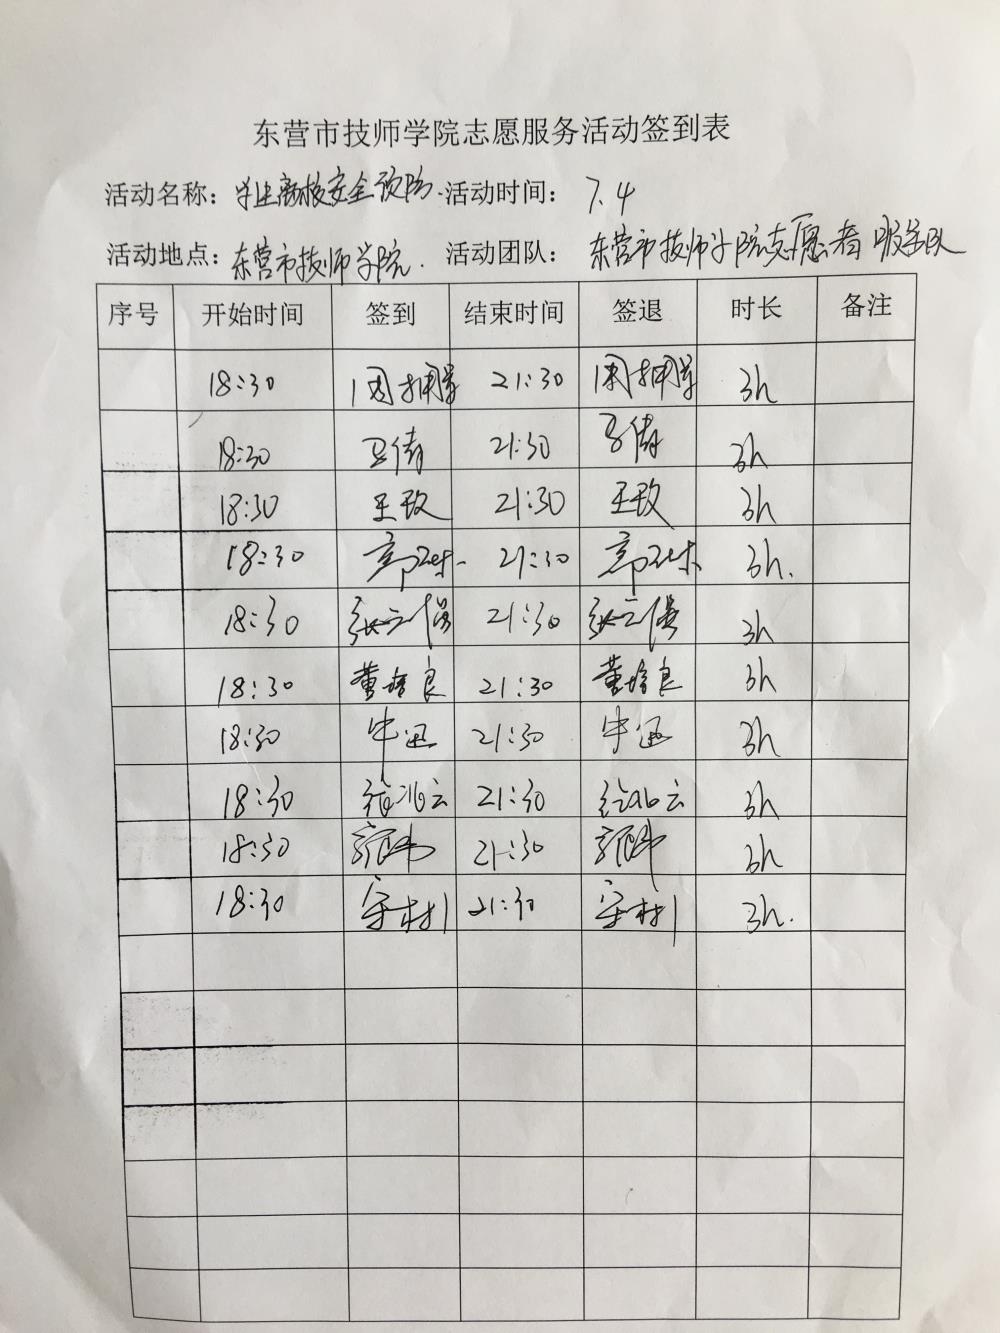 东营市技师学院志愿服务活动签到表
活动名称：学生离校安全预防 活动时间：7.4
活动地点：东营市技师学院. 活动团队：东营市技师学院志愿者服务队
序号 开始时间 签到 结束时间 签退 时长 备注
18:30 周拥军 21:30 周拥军 3h
18:30 王倩 21:30 王倩 3h
18:30 王玫 21:30 王玫 3h
18:30 21:30 3h.
18:30 张云强 21:30 张云强 3h
18:30 董培良 21:30 董培良 3h
18:30 牛迅 21:30 牛迅 3h
18:30 21:30 3h
18:30 21:30 3h
18:30 21:30 3h.